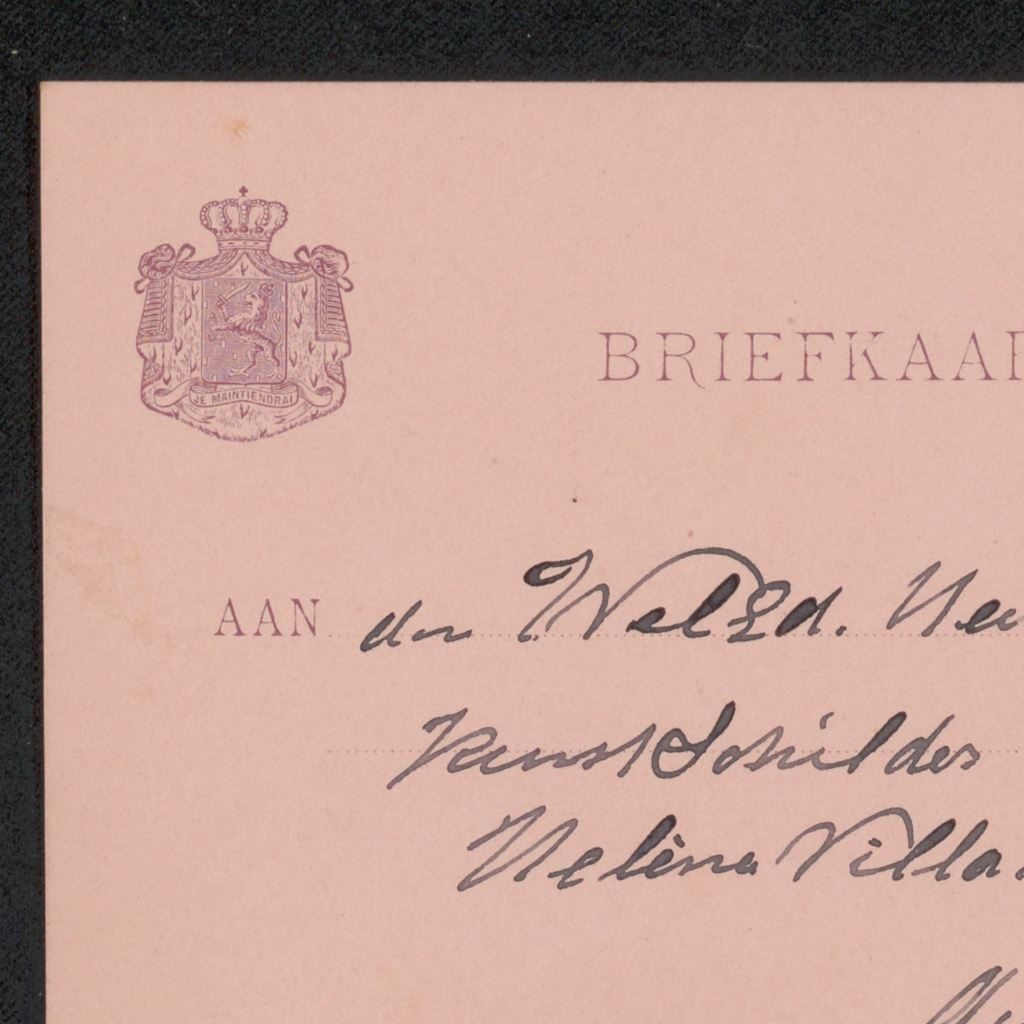 JE MAINTIENDRAI
BRIEFKAA
AAN den WelEd. Hee
Kunstschilder
Helène Villa